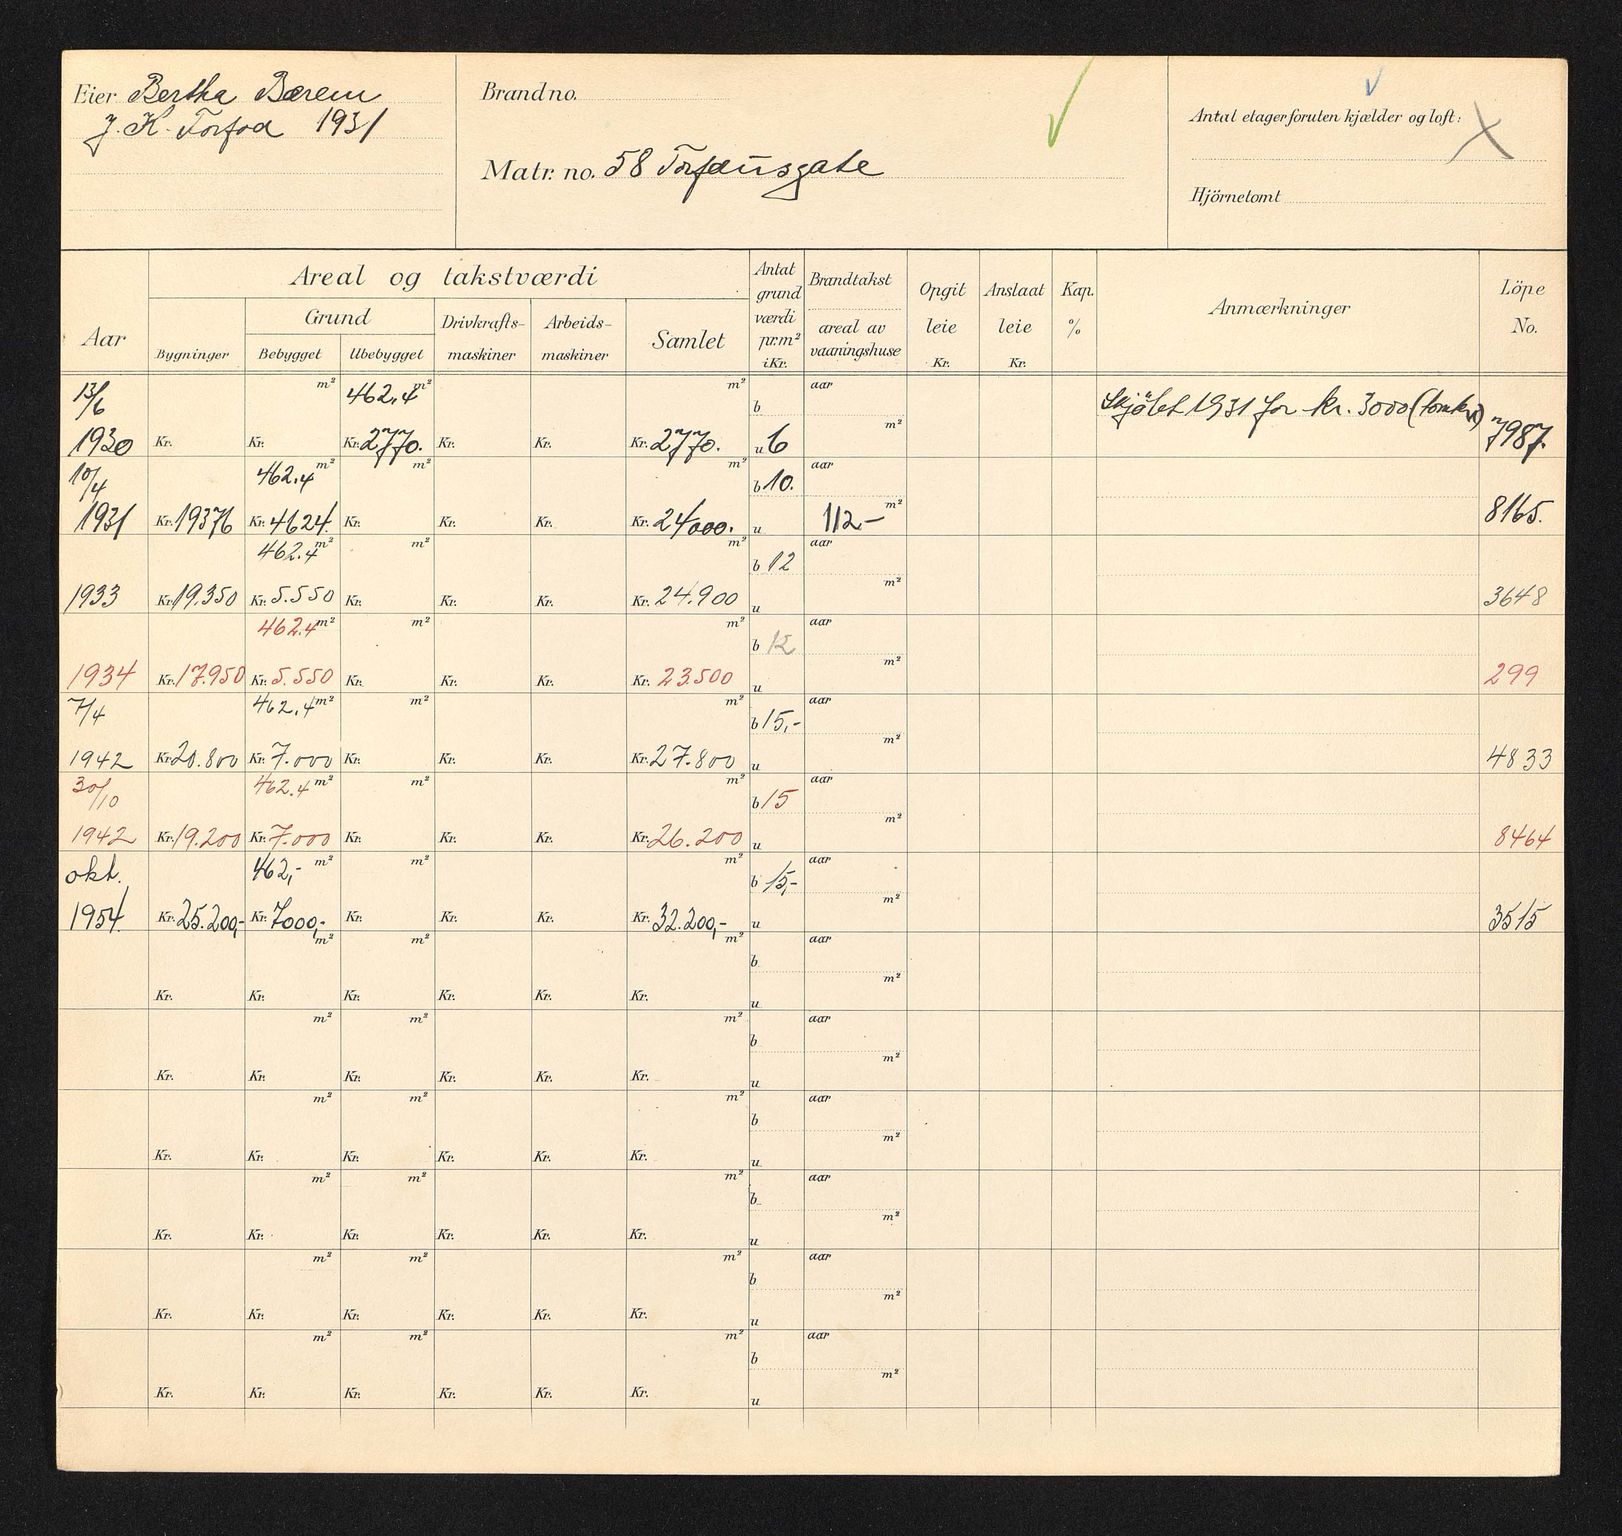 Eier Bertha Bærem
J. K. Torfod 1931
Brandno.
Matr. no. 58 Torfæusgate
Antal etager foruten kjælder og loft:
Hjörnetomt
Aar
Areal og takstværdi
Bygninger
Grund
Bebygget Ubebygget
Drivkrafts-
maskiner
Arbeids-
maskiner
Samlet
Antat
grund
værdi
pr.m²
i Kr.
Brandtakst
areal av
vaaningshuse
Opgit
leie
Kr.
Anslaat
leie
Kr.
Kap.
%
Anmærkninger
Löpe
No.
13/6 m² 462.4 m² m² b aar Skjötet 1931 for kr. 3000
1930 Kr. Kr. Kr. 2770. Kr. Kr. Kr. 2770. u 6 m² 7987.
10/4 462.4 m² m² m² b 10. aar
1931 Kr. 19376 Kr. 4624. Kr. Kr. Kr. Kr. 24000. u 112.- m² 8165.
462.4 m² m² m² b 12 aar
1933 Kr. 19.350 Kr. 5.550 Kr. Kr. Kr. Kr. 24.900 u m² 3648
462.4 m² m² m² b 12 aar
1934 Kr. 17.950 Kr. 5.550 Kr. Kr. Kr. Kr. 23.500 u m² 299
7/4 462.4 m² m² m² b 15,- aar
1942 Kr. 20.800 Kr. 7.000 Kr. Kr. Kr. Kr. 27.800 u m² 4833
30/10 462.4 m² m² m² b 15 aar
1942 Kr. 19.200 Kr. 7.000 Kr. Kr. Kr. Kr. 26.200 u m² 8464
okt. 462,- m² m² m² b 15,- aar
1954. Kr. 25.200,- Kr. 7000,- Kr. Kr. Kr. Kr. 32.200,- u m² 3515
m² m² m² b aar
Kr. Kr. Kr. Kr. Kr. Kr. u m²
m² m² m² b aar
Kr. Kr. Kr. Kr. Kr. Kr. u m²
m² m² m² b aar
Kr. Kr. Kr. Kr. Kr. Kr. u m²
m² m² m² b aar
Kr. Kr. Kr. Kr. Kr. Kr. u m²
m² m² m² b aar
Kr. Kr. Kr. Kr. Kr. Kr. u m²
m² m² m² b aar
Kr. Kr. Kr. Kr. Kr. Kr. u m²